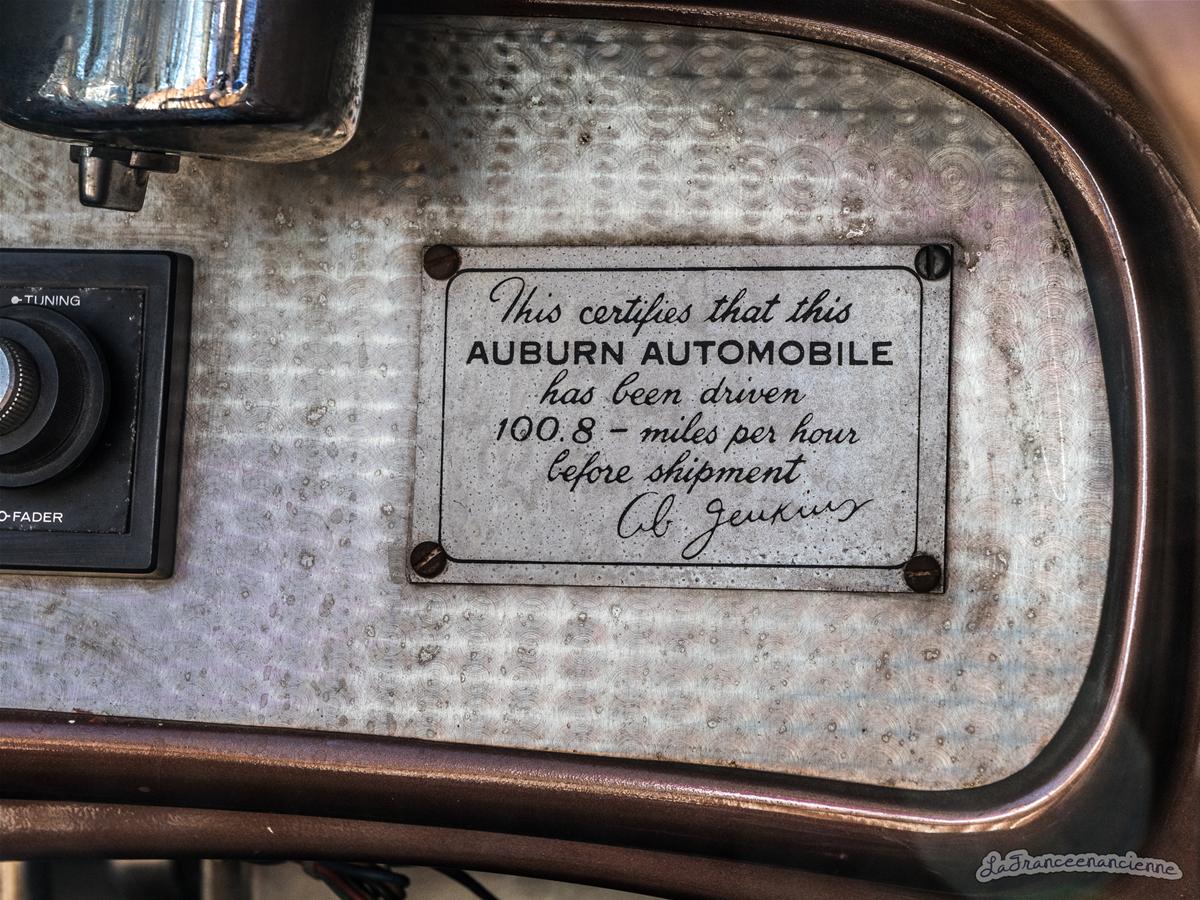 TUNING
FADER
This certifies that this
AUBURN AUTOMOBILE
has been driven
100.8 – miles per hour
before shipment
Ab Jenkins
LaFranceenancienne